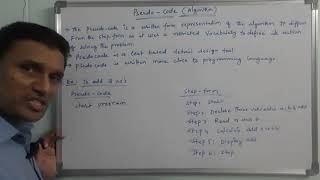 Pseudo-Code (Algorithm)
* The pseudo-code is a written form representation of the algorithm. It differs
from the step form as it uses a restricted vocabulary to define its action
of solving the problem.
* Pseudo-code is a text based detail design tool.
* Pseudo-code is written more close to programming language.
Ex: To add 2 no's
Pseudo-Code
start program
Step-form
Step 1: Start
Step 2: Declare three variables a, b, add
Step 3: Read a and b
Step 4: Calculate add = a+b
Step 5: Display add
Step 6: Stop